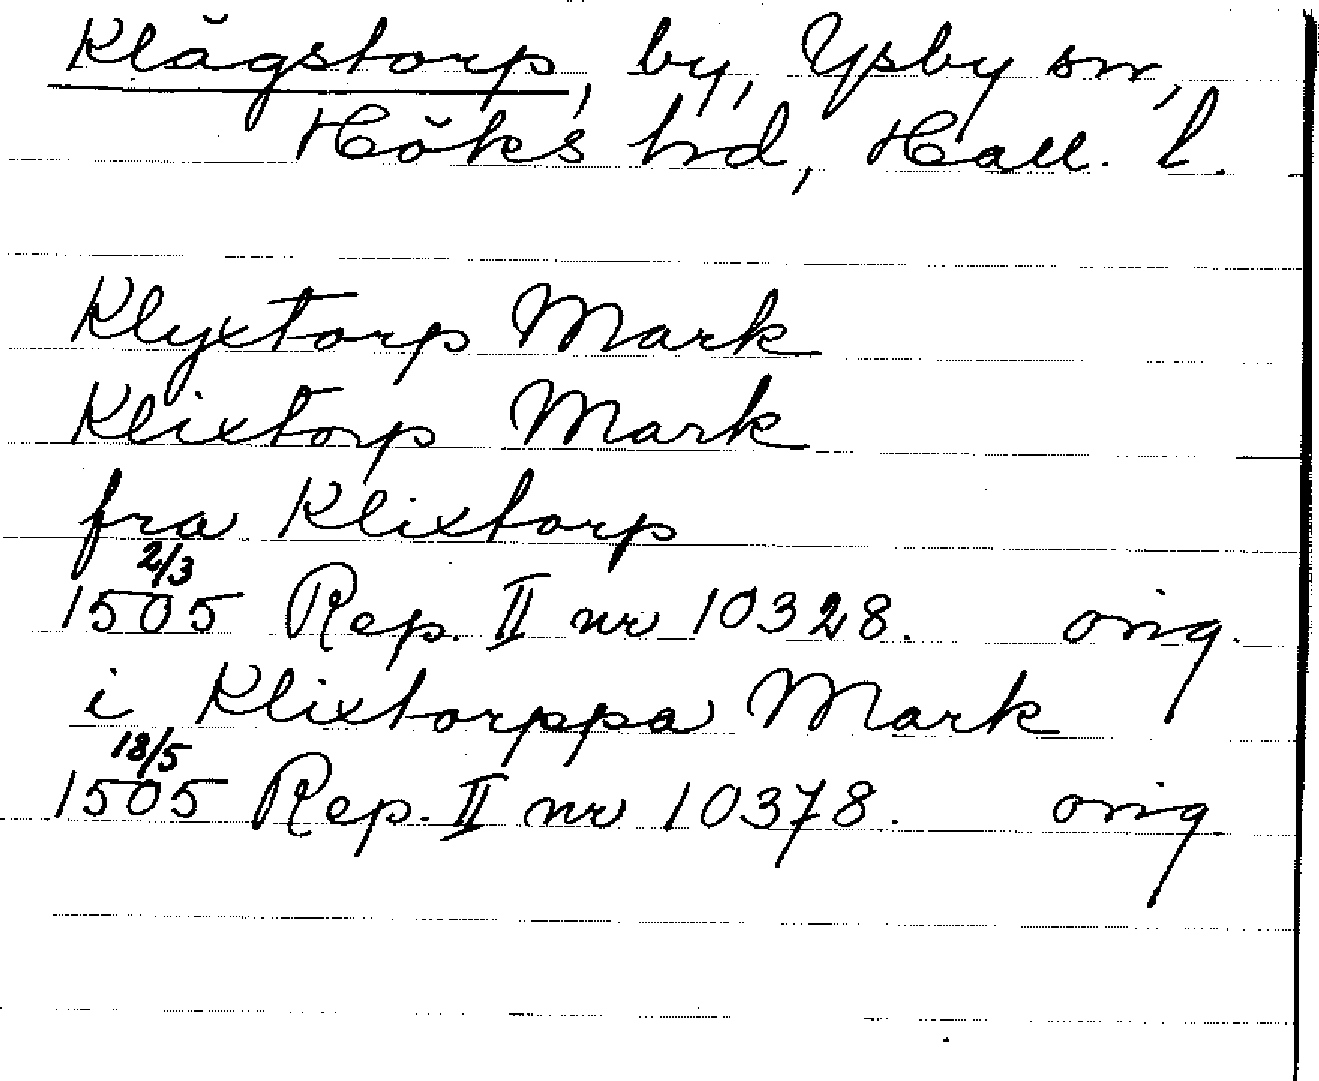 Klägstorp, by, Ysby sn,
Höks hd, Hall. l.
Klyxtorp Mark
Klixtorp Mark
fra Klixtorp
2/3
1505 Rep. II nr 10328. orig.
i Klixtorppa Mark
18/5
1505 Rep. II nr 10378. orig.